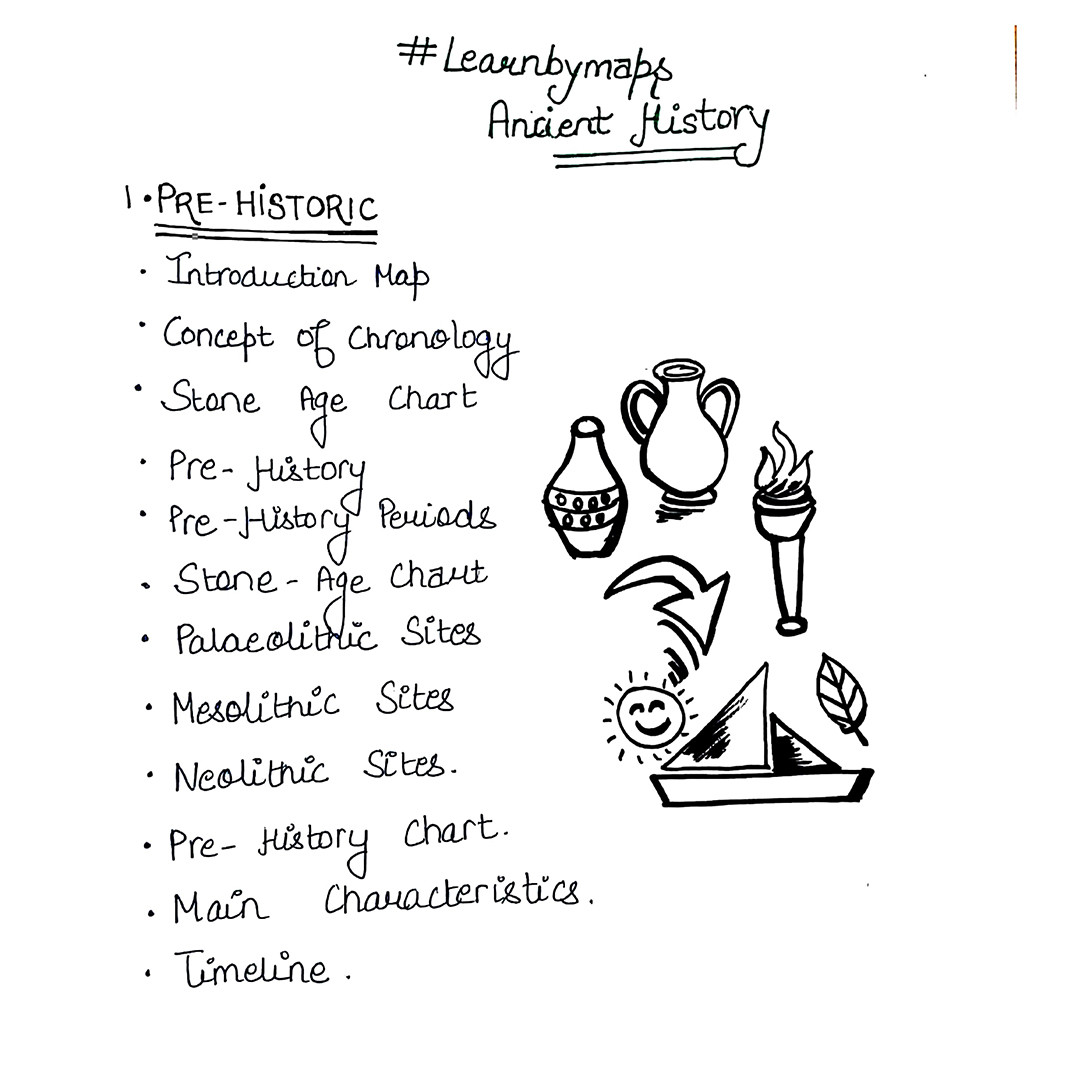 #Learnbymaps
Ancient History
1. PRE-HiSTORIC
• Introduction Map
• Concept of Chronology
• Stone Age Chart
• Pre-History
• Pre-History Periods
• Stone-Age Chart
• Palaeolithic Sites
• Mesolithic Sites
• Neolithic Sites.
• Pre-History Chart.
• Main Characteristics.
• Timeline.